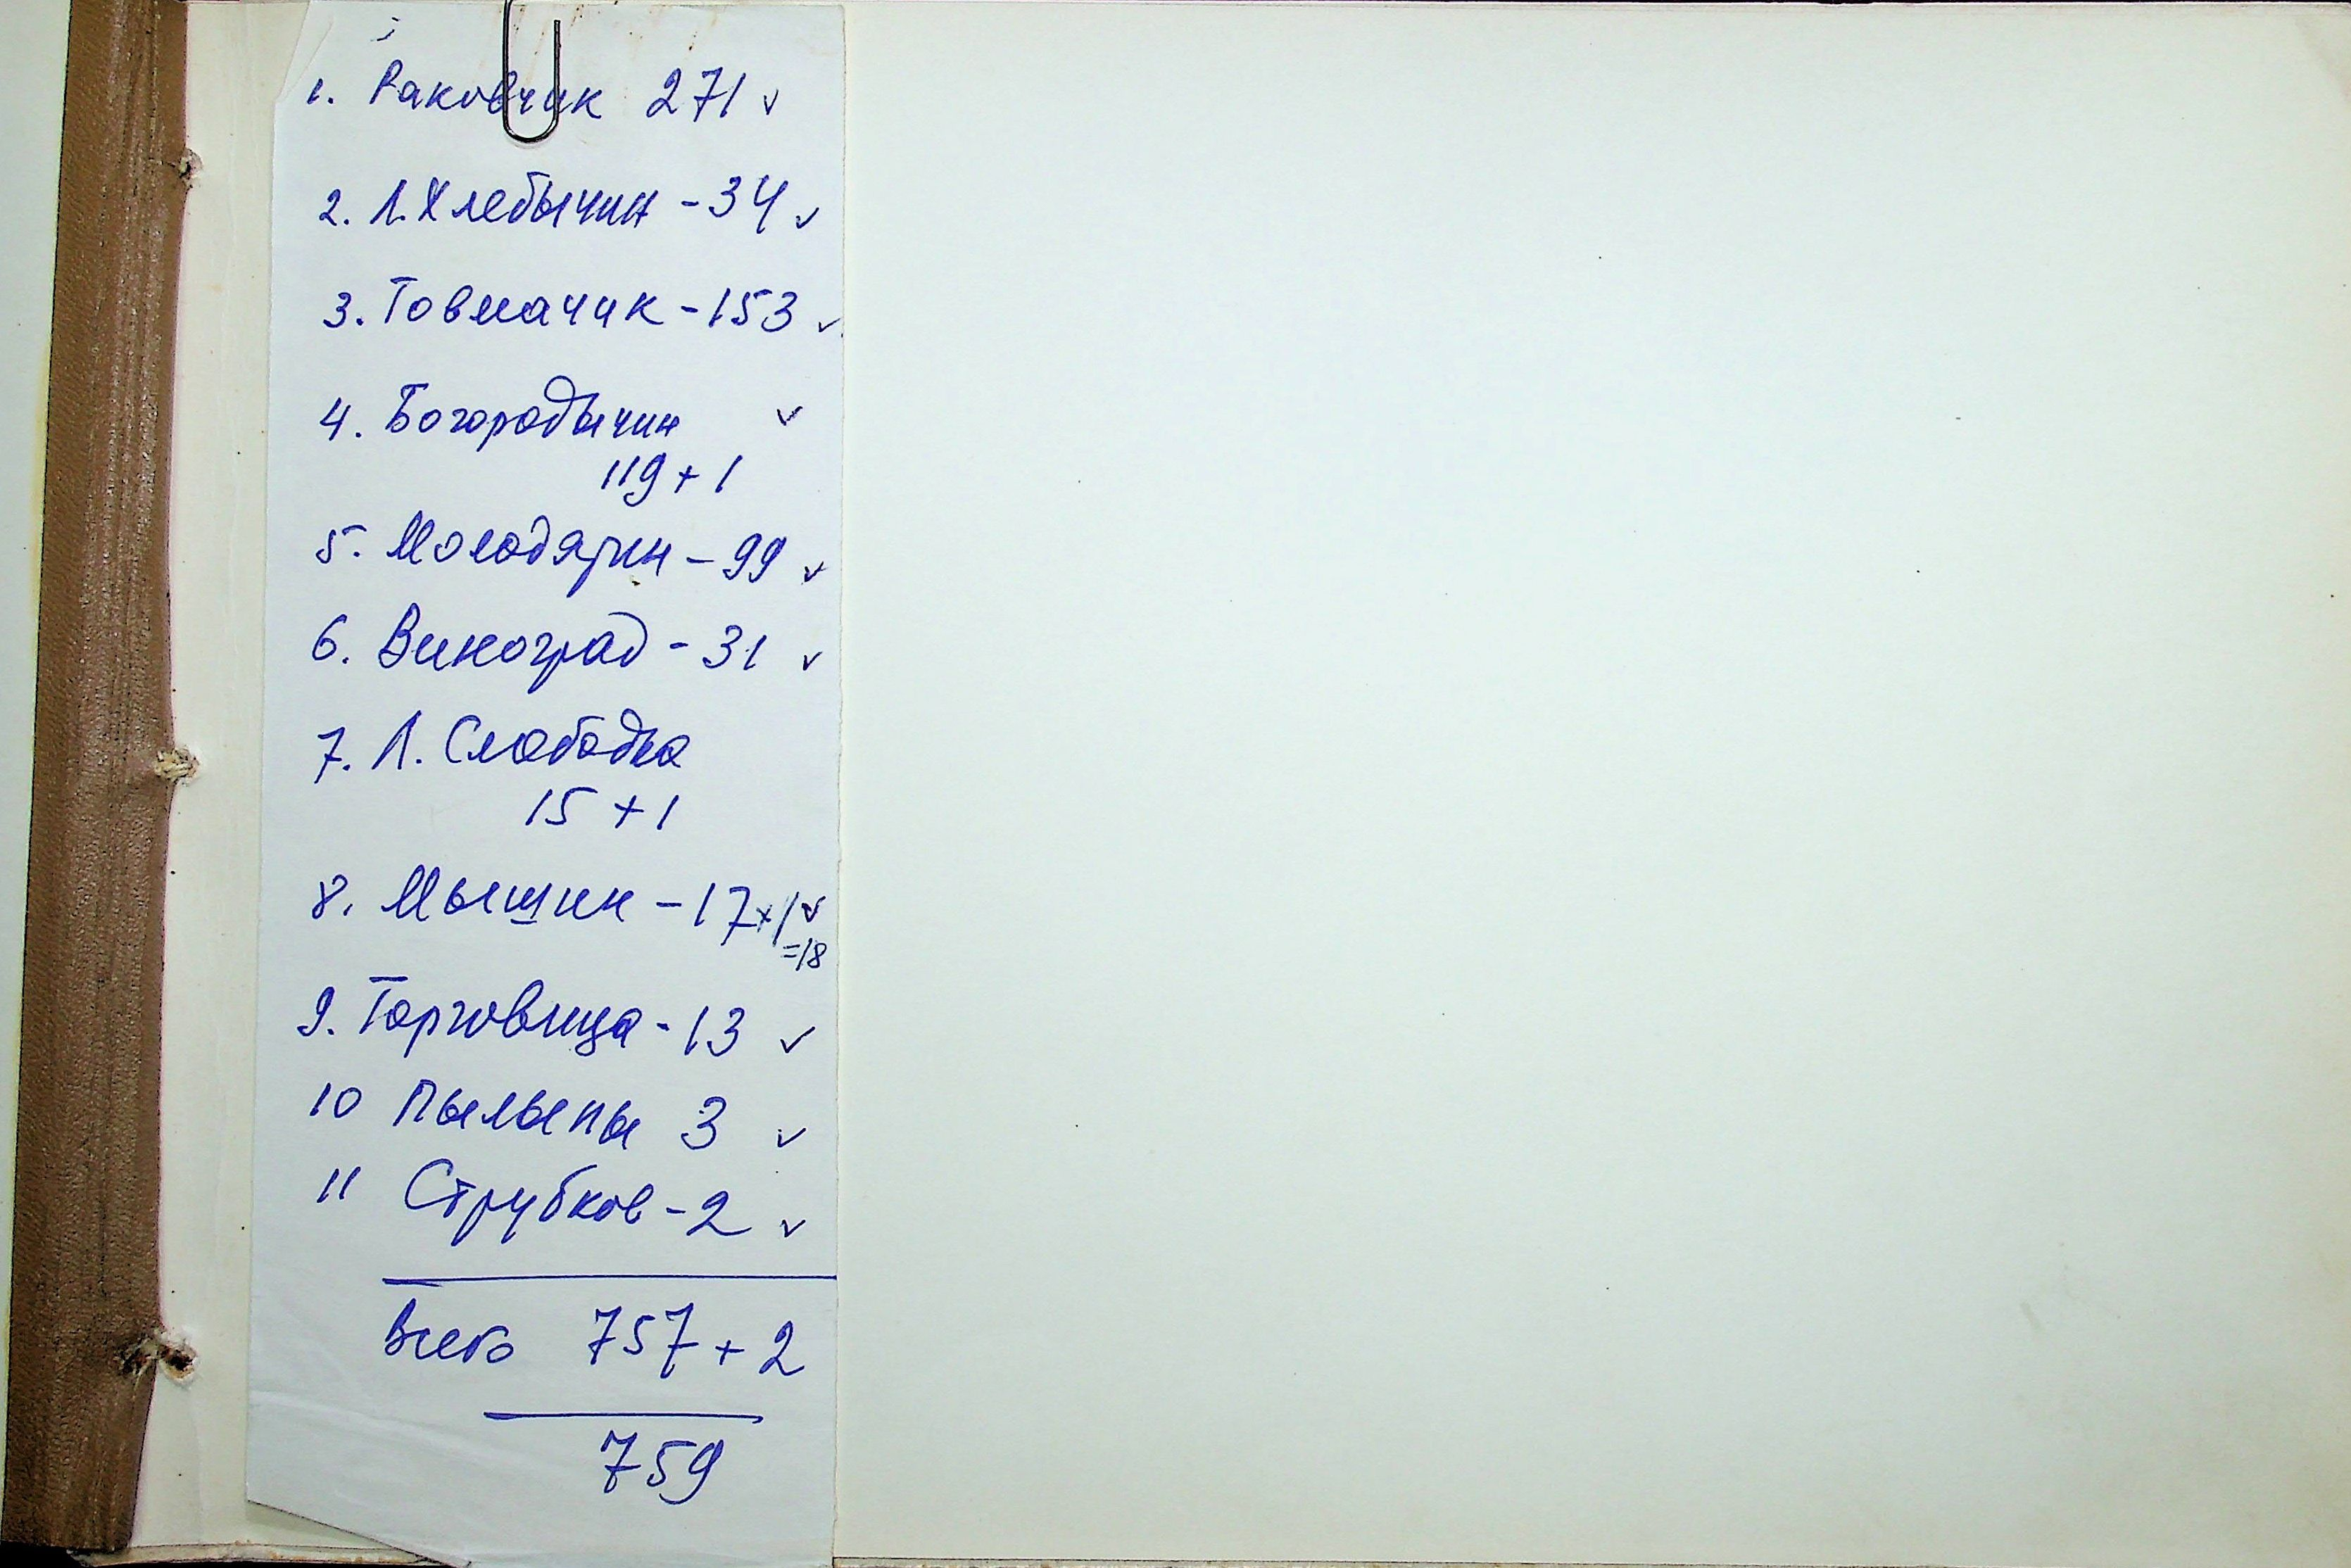 1. Раковчик 271 ✓
2. Л.Хлебычин - 34 ✓
3. Товмачик - 153 ✓
4. Богородычин ✓
119 + 1
5. Молодятин - 99 ✓
6. Виноград - 31 ✓
7. Л. Слободка
15 + 1
8. Мышин - 17+1 ✓
=18
9. Торговица - 13 ✓
10 Пылыпы 3 ✓
11 Струбков - 2 ✓
Всего 757 + 2
759